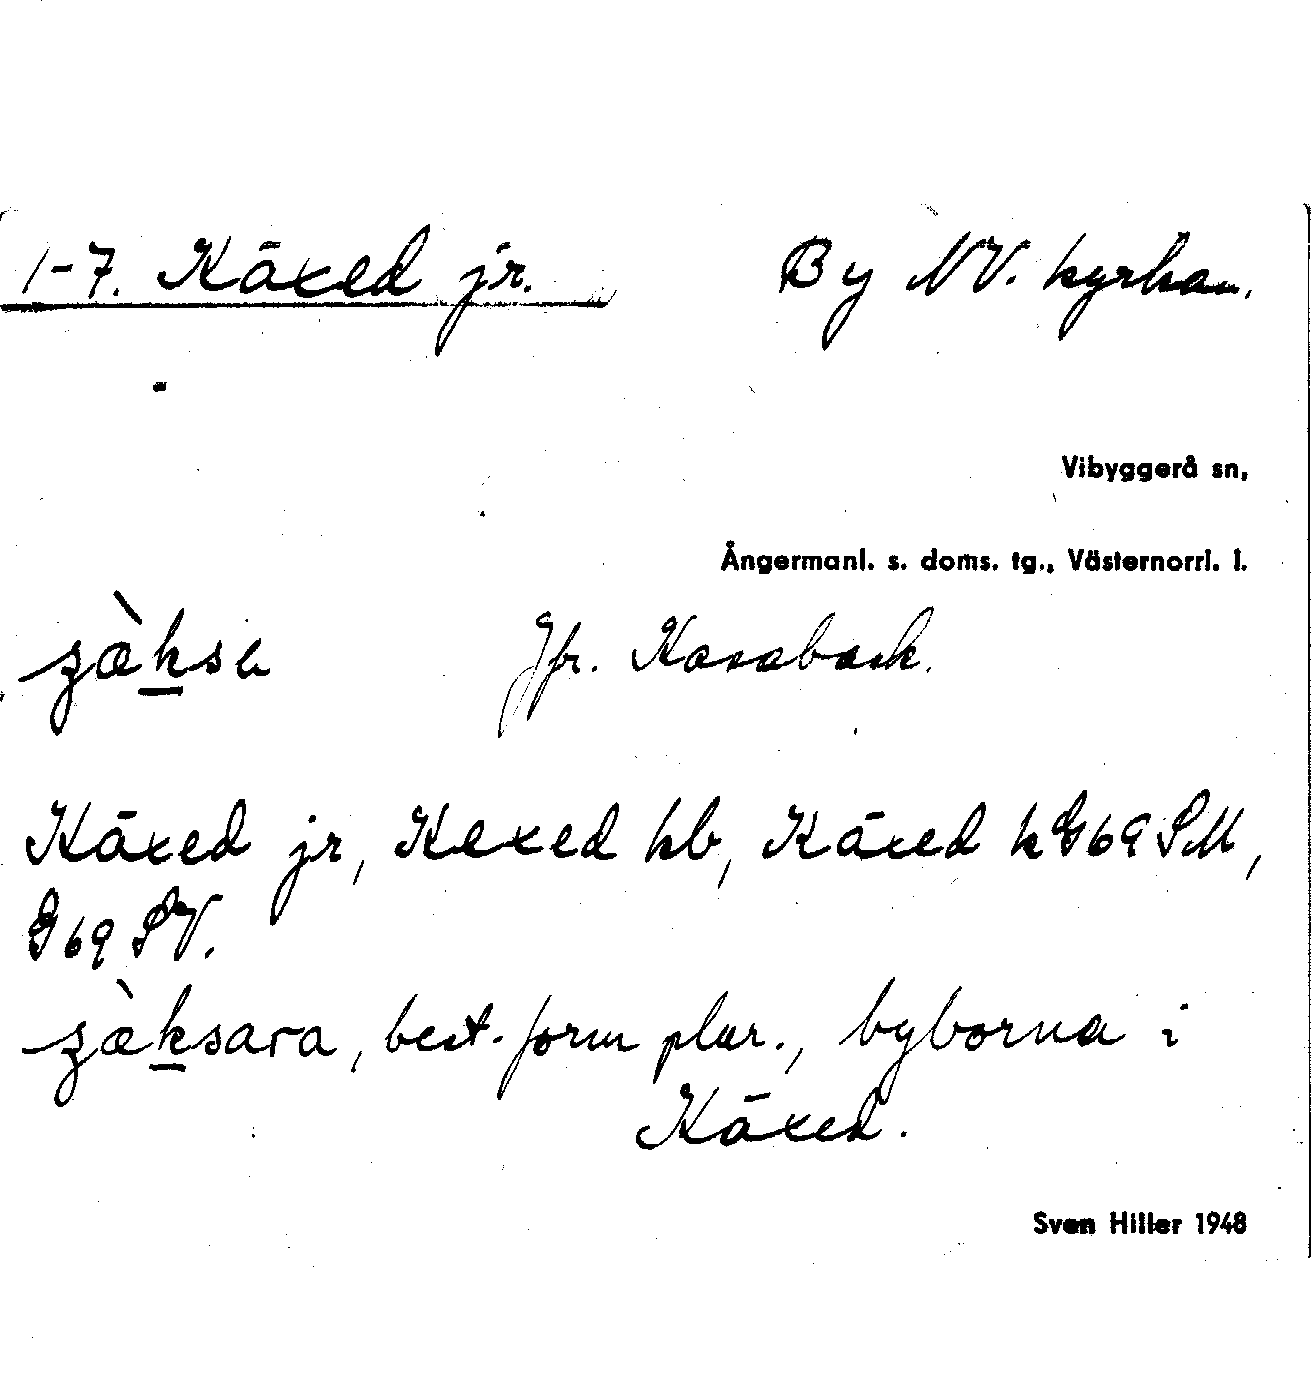 1-7. Käxed jr. By NV. kyrkan.
Vibyggerå sn,
Ångermanl. s. doms. tg., Västernorrl. l.
Jfr.
Käxed jr, Kexed hb, Käxed k G69 SM,
G69 SV.
best. form plur., byborna i
Käxed.
Sven Hiller 1948